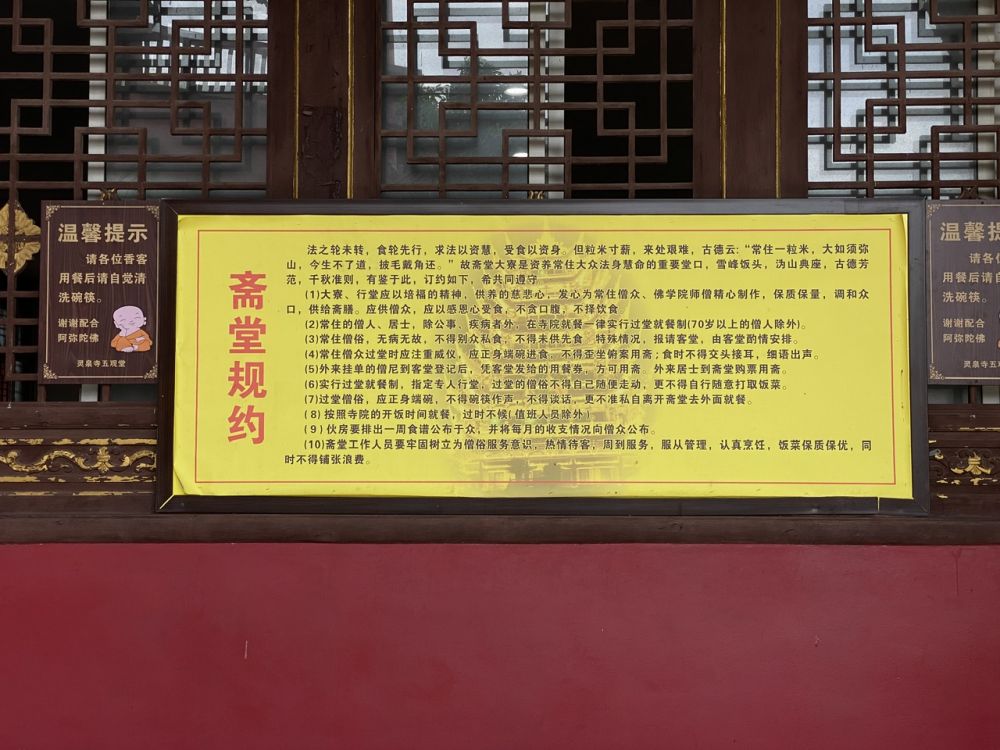 温馨提示
请各位香客
用餐后请自觉清
洗碗筷。
谢谢配合
阿弥陀佛
灵泉寺五观堂
斋堂规约
法之轮未转，食轮先行，求法以资慧，受食以资身。但粒米寸薪，来处艰难，古德云：“常住一粒米，大如须弥
山，今生不了道，披毛戴角还。”故斋堂大寮是资养常住大众法身慧命的重要堂口，雪峰饭头，沩山典座，古德芳
范，千秋准则，有鉴于此，订约如下，希共同遵守
(1)大寮、行堂应以培福的精神，供养的慈悲心，发心为常住僧众、佛学院师僧精心制作，保质保量，调和众
口，供给斋膳。应供僧众，应以感恩心受食，不贪口腹，不择饮食
(2)常住的僧人、居士，除公事、疾病者外，在寺院就餐一律实行过堂就餐制(70岁以上的僧人除外)．
(3)常住僧俗，无病无故，不得别众私食，不得未供先食，特殊情况，报请客堂，由客堂酌情安排。
(4)常住僧众过堂时应注重威仪，应正身端碗进食，不得歪坐俯案用斋；食时不得交头接耳，细语出声。
(5)外来挂单的僧尼到客堂登记后，凭客堂发给的用餐券，方可用斋。外来居士到斋堂购票用斋。
(6)实行过堂就餐制，指定专人行堂，过堂的僧俗不得自己随便走动，更不得自行随意打取饭菜。
(7)过堂僧俗，应正身端碗，不得碗筷作声，不得谈话，更不准私自离开斋堂去外面就餐。
(8)按照寺院的开饭时间就餐，过时不候(值班人员除外)
(9)伙房要排出一周食谱公布于众，并将每月的收支情况向僧众公布。
(10)斋堂工作人员要牢固树立为僧俗服务意识，热情待客，周到服务，服从管理，认真烹饪，饭菜保质保优，同
时不得铺张浪费。
温馨提
请各位
用餐后请
洗碗筷。
谢谢配合
阿弥陀佛
灵泉寺五